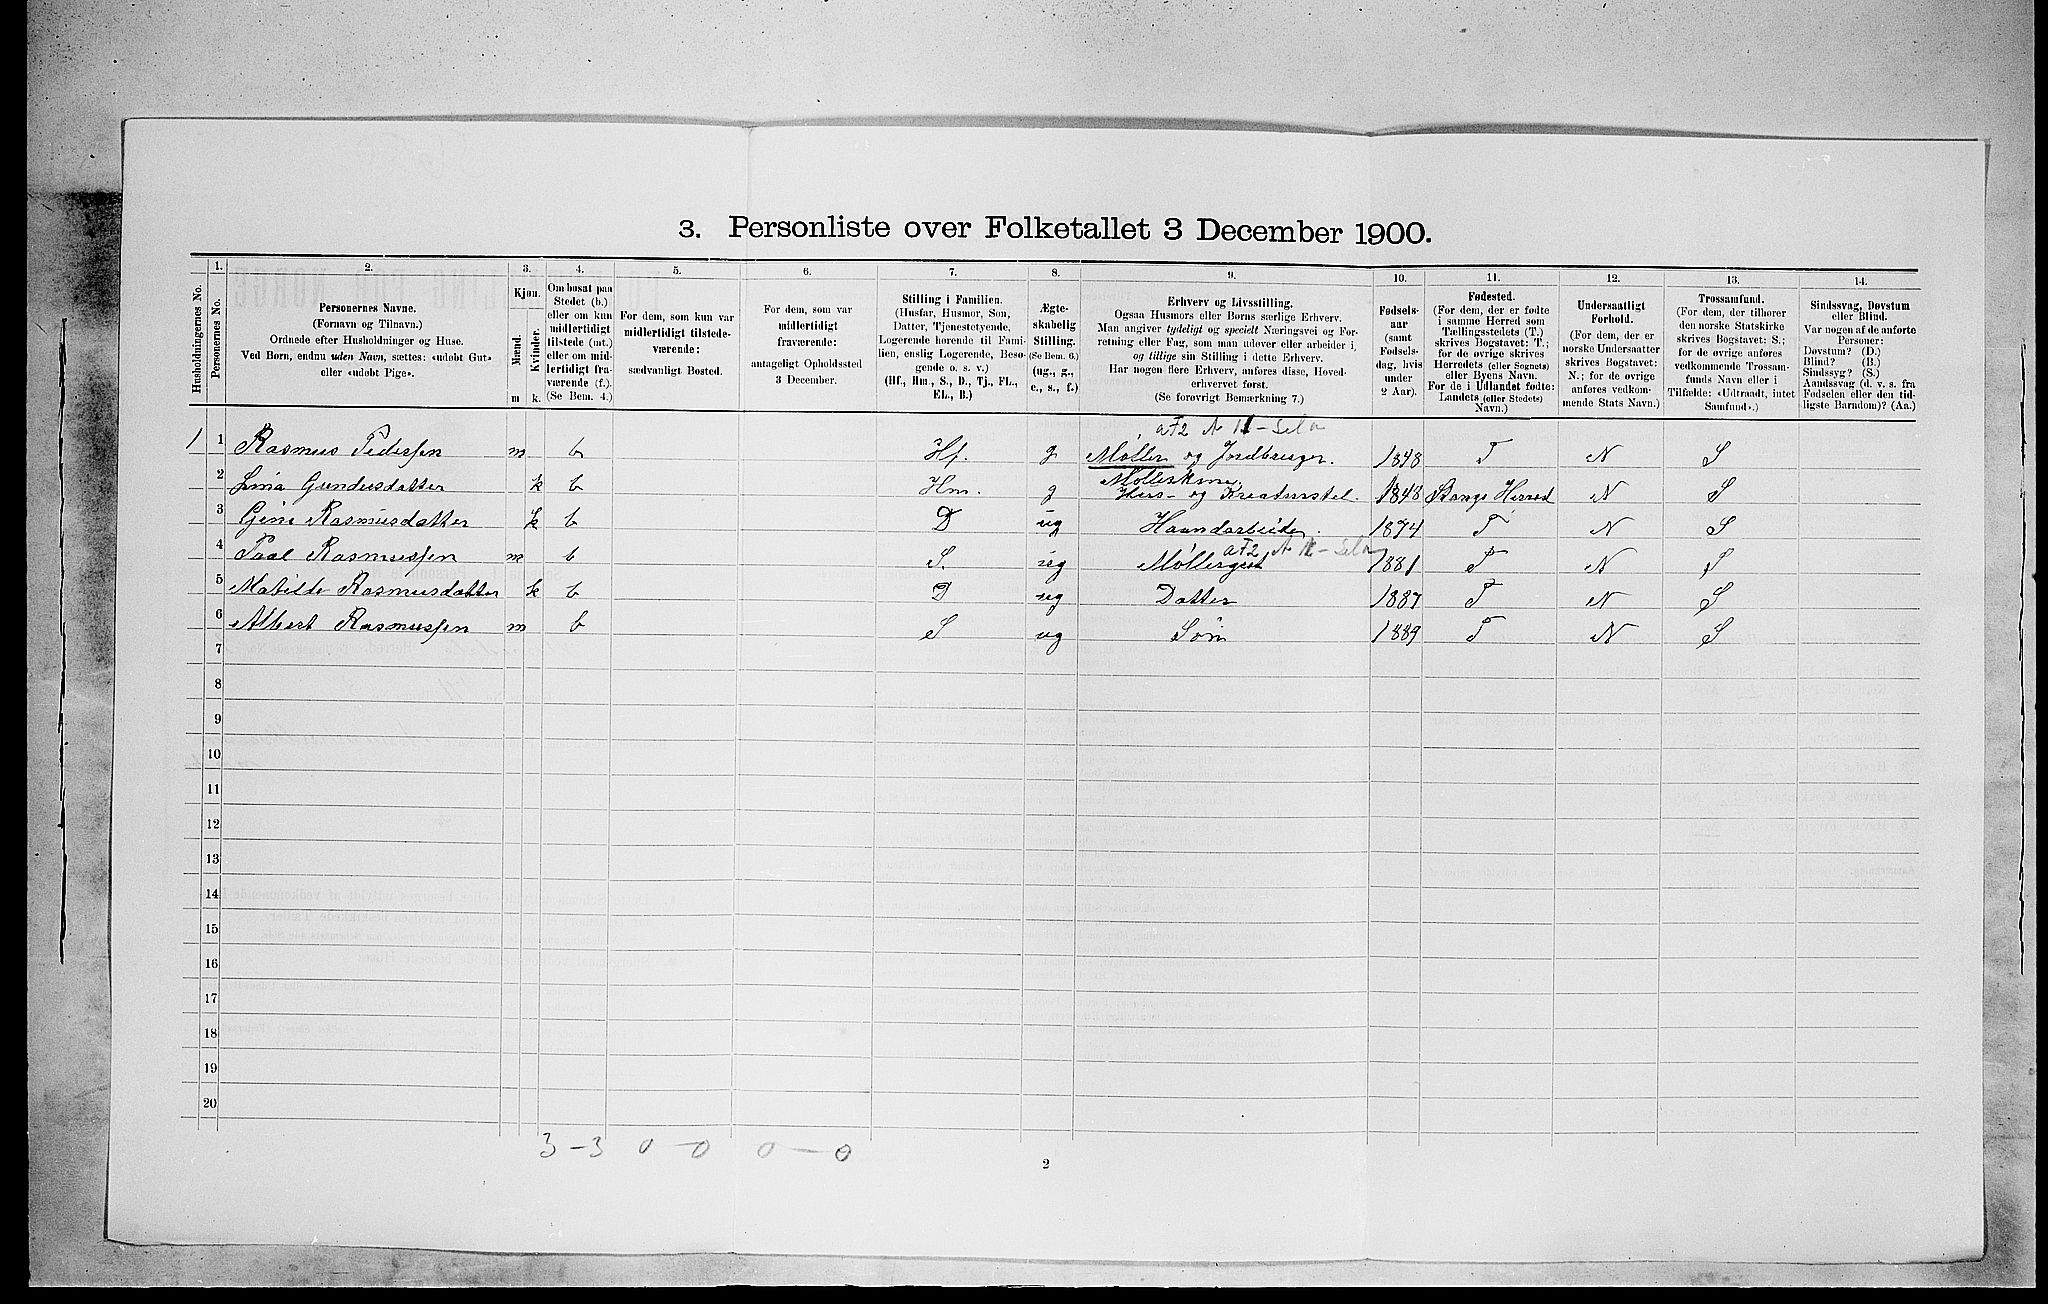 3. Personliste over Folketallet 3 December 1900.
Husholdningernes No.
1.
Personernes No.
2.
Personernes Navne.
(Fornavn og Tilnavn.)
Ordnede efter Husholdninger og Huse.
Ved Børn, endnu uden Navn, sættes: «udøbt Gut»
eller «udøbt Pige».
3.
Kjøn.
Mænd.
Kvinder.
m k.
4.
Om bosat paa
Stedet (b.)
eller om kun
midlertidigt
tilstede (mt.)
eller om mid-
lertidigt fra-
værende (f.).
(Se Bem. 4.)
5.
For dem, som kun var
midlertidigt tilstede-
værende:
sædvanligt Bosted.
6.
For dem, som var
midlertidigt
fraværende:
antageligt Opholdssted
3 December.
7.
Stilling i Familien.
(Husfar, Husmor, Søn,
Datter, Tjenestetyende,
Logerende hørende til Fami-
lien, enslig Logerende, Besø-
gende o. s. v.)
(Hf., Hm., S., D., Tj., FL.,
EL., B.)
8.
Ægte-
skabelig
Stilling.
(Se Bem. 6.)
(ug., g.,
e., s., f.)
9.
Erhverv og Livsstilling.
Ogsaa Husmors eller Børns særlige Erhverv.
Man angiver tydeligt og specielt Næringsvei og For-
retning eller Fag, som man udøver eller arbeider i,
og tillige sin Stilling i dette Erhverv.
Har nogen flere Erhverv, anføres disse, Hoved-
erhvervet først.
(Se forøvrigt Bemærkning 7.)
10.
Fødsels-
aar
(samt
Fødsels-
dag, hvis
under
2 Aar).
11.
Fødested.
(For dem, der er fødte
i samme Herred som
Tællingsstedets (T.)
skrives Bogstavet: T.;
for de øvrige skrives
Herredets (eller Sognets)
eller Byens Navn.
For de i Udlandet fødte:
Landets (eller Stedets)
Navn.)
12.
Undersaatligt
Forhold.
(For dem, der er
norske Undersaatter
skrives Bogstavet:
N.; for de øvrige
anføres vedkom-
mende Stats Navn.)
13.
Trossamfund.
(For dem, der tilhører
den norske Statskirke
skrives Bogstavet: S.;
for de øvrige anføres
vedkommende Trossam-
funds Navn eller i
Tilfælde: «Udtraadt, intet
Samfund».)
14.
Sindssvag, Døvstum
eller Blind.
Var nogen af de anførte
Personer:
Døvstum? (D.)
Blind? (B.)
Sindssyg? (S.)
Aandssvag (d. v. s. fra
Fødselen eller den tid-
ligste Barndom)? (Aa.)
1 1 Rasmus Pedersen m b Hf. g Møller og Jordbruger. 1848 T N S
2 Lina Gundersdatter k b Hm. g Hus- og Kreaturstel. 1848 Stange Herred N S
3 Gine Rasmusdatter k b D ug Haandarbeide. 1874 T N S
4 Paal Rasmussen m b S. ug Møllergut 1881 T N S
5 Matilde Rasmusdatter k b D ug Datter 1887 T N S
6 Albert Rasmussen m b S ug Søn 1889 T N S
7
8
9
10
11
12
13
14
15
16
17
18
19
20
3-3 0-0 0-0
2